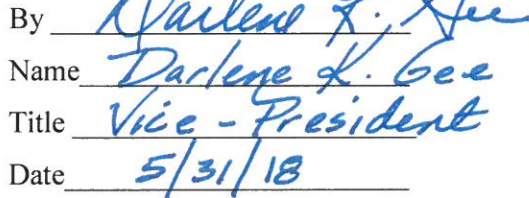 By Darlene K. Gee
Name Darlene K. Gee
Title Vice-President
Date 5/31/18